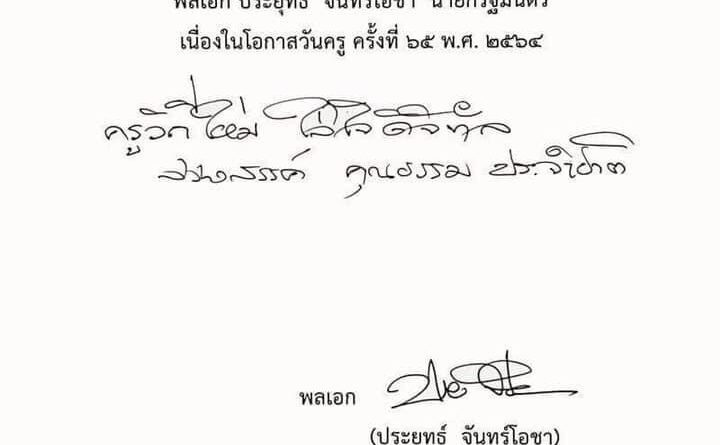 พลเอก ประยุทธ์ จันทร์โอชา นายกรัฐมนตรี
เนื่องในโอกาสวันครู ครั้งที่ ๖๕ พ.ศ. ๒๕๖๔
ครูวิถีใหม่ ใส่ใจดิจิทัล
สร้างสรรค์ คุณธรรม ประจำชาติ
พลเอก
(ประยุทธ์ จันทร์โอชา)